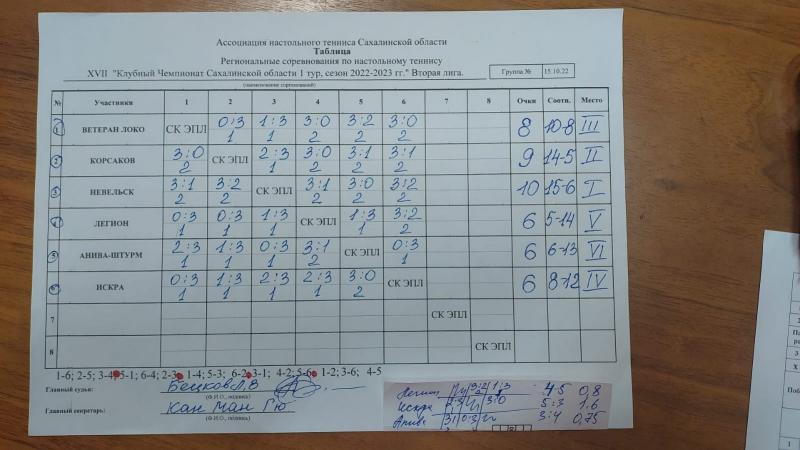 Ассоциация настольного тенниса Сахалинской области
Таблица
Региональные соревнования по настольному теннису
XVII "Клубный Чемпионат Сахалинской области 1 тур, сезон 2022-2023 гг." Вторая лига. Группа № 15.10.22
(наименование соревнований)
№ Участники 1 2 3 4 5 6 7 8 Очки Соотн. Место
1 ВЕТЕРАН ЛОКО СК ЭПЛ 0:3 1:3 3:0 3:2 3:0 8 10-8 III
1 1 2 2 2
2 КОРСАКОВ 3:0 СК ЭПЛ 2:3 3:0 3:1 3:1 9 14-5 II
2 1 2 2 2
3 НЕВЕЛЬСК 3:1 3:2 СК ЭПЛ 3:1 3:0 3:2 10 15-6 I
2 2 2 2 2
4 ЛЕГИОН 0:3 0:3 1:3 СК ЭПЛ 1:3 3:2 6 5-14 V
1 1 1 1 2
5 АНИВА-ШТУРМ 2:3 1:3 0:3 3:1 СК ЭПЛ 0:3 6 6-13 VI
1 1 1 2 1
6 ИСКРА 0:3 1:3 2:3 2:3 3:0 СК ЭПЛ 6 8-12 IV
1 1 1 1 2
7 СК ЭПЛ
8 СК ЭПЛ
1-6; 2-5; 3-4; 5-1; 6-4; 2-3; 1-4; 5-3; 6-2; 3-1; 4-2; 5-6; 1-2; 3-6; 4-5
Главный судья:
(Ф.И.О., подпись)
Главный секретарь: Кан Ман Гю
(Ф.И.О., подпись)
Легион 3:2 1:3 4:5 0,8
Искра 3:0 5:3 1.6
Анива 3:1 0:3 3:4 0,75